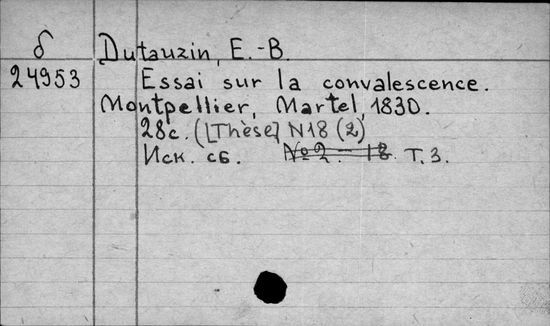 б Dutauzin, E.-B.
24953 Essai sur la convalescence.
Montpellier, Martel, 1830.
28c. ([Thèse] N18 (2)
Иск. сб. №2. — 18. Т. 3.